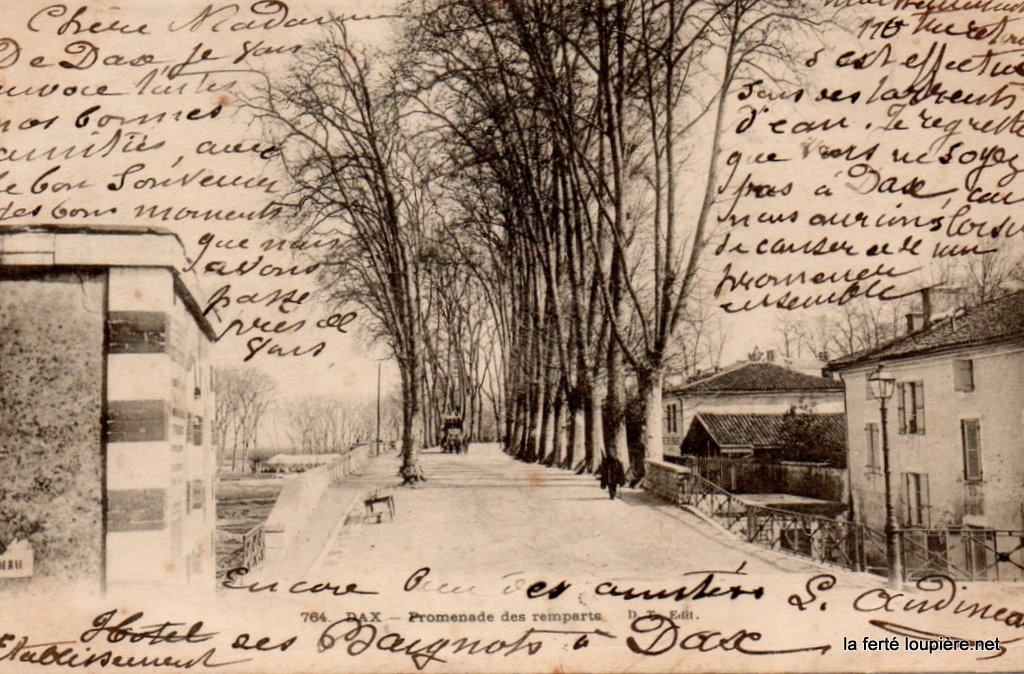 Chère Madame
De Dax je vous
envoie toutes
nos bonnes
amitiés, avec
le bon souvenir
des bons moments
que nous
avons
passé
près de
vous
s'est effectué
sous des torrents
d'eau. Je regrette
que vous ne soyez
pas à Dax, car
nous aurions
de causer et de
promener
ensemble
Encore bien des amitiés
L. Audineau
764. DAX — Promenade des remparts D. T. Edit.
Hotel des Baignots à Dax
Etablissement
la ferté loupière.net